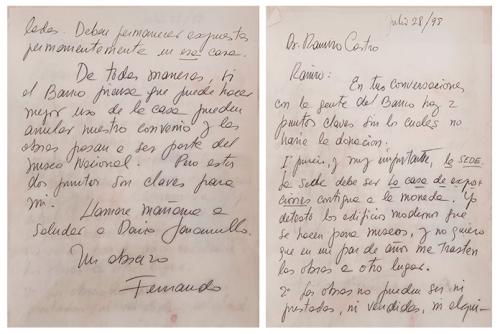 julio 28/98
Dr. Ramiro Castro
Ramiro: En tus conversaciones
con la gente del Banco hay 2
puntos claves sin los cuales no
haría la donación:
1° primero, y muy importante, la SEDE.
La sede debe ser la casa de expo-
siciones contigua a la moneda. Yo
detesto los edificios modernos que
se hacen para museos, y no quiero
que en un par de años me trasteen
las obras a otro lugar.
2° Las obras no pueden ser ni
prestadas, ni vendidas, ni alqui-
ladas. Deben permanecer expuestas
permanentemente en esa casa.
De todas maneras, si
el Banco piensa que puede hacer
mejor uso de la casa pueden
anular nuestro convenio y las
obras pasan a ser parte del
museo Nacional. Pero estos
dos puntos son claves para
mi.
Llamaré mañana a
saludar a Dario Jaramillo.
Un abrazo
Fernando